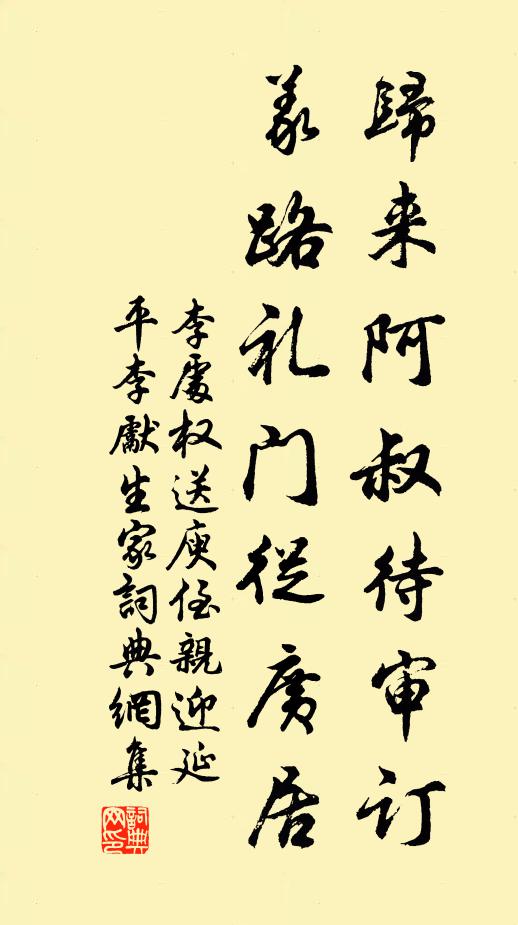 歸来阿叔待审订
義路礼门從廣居
李處权送庾侄親迎延
平李獻生家詞典網集
詞典网印